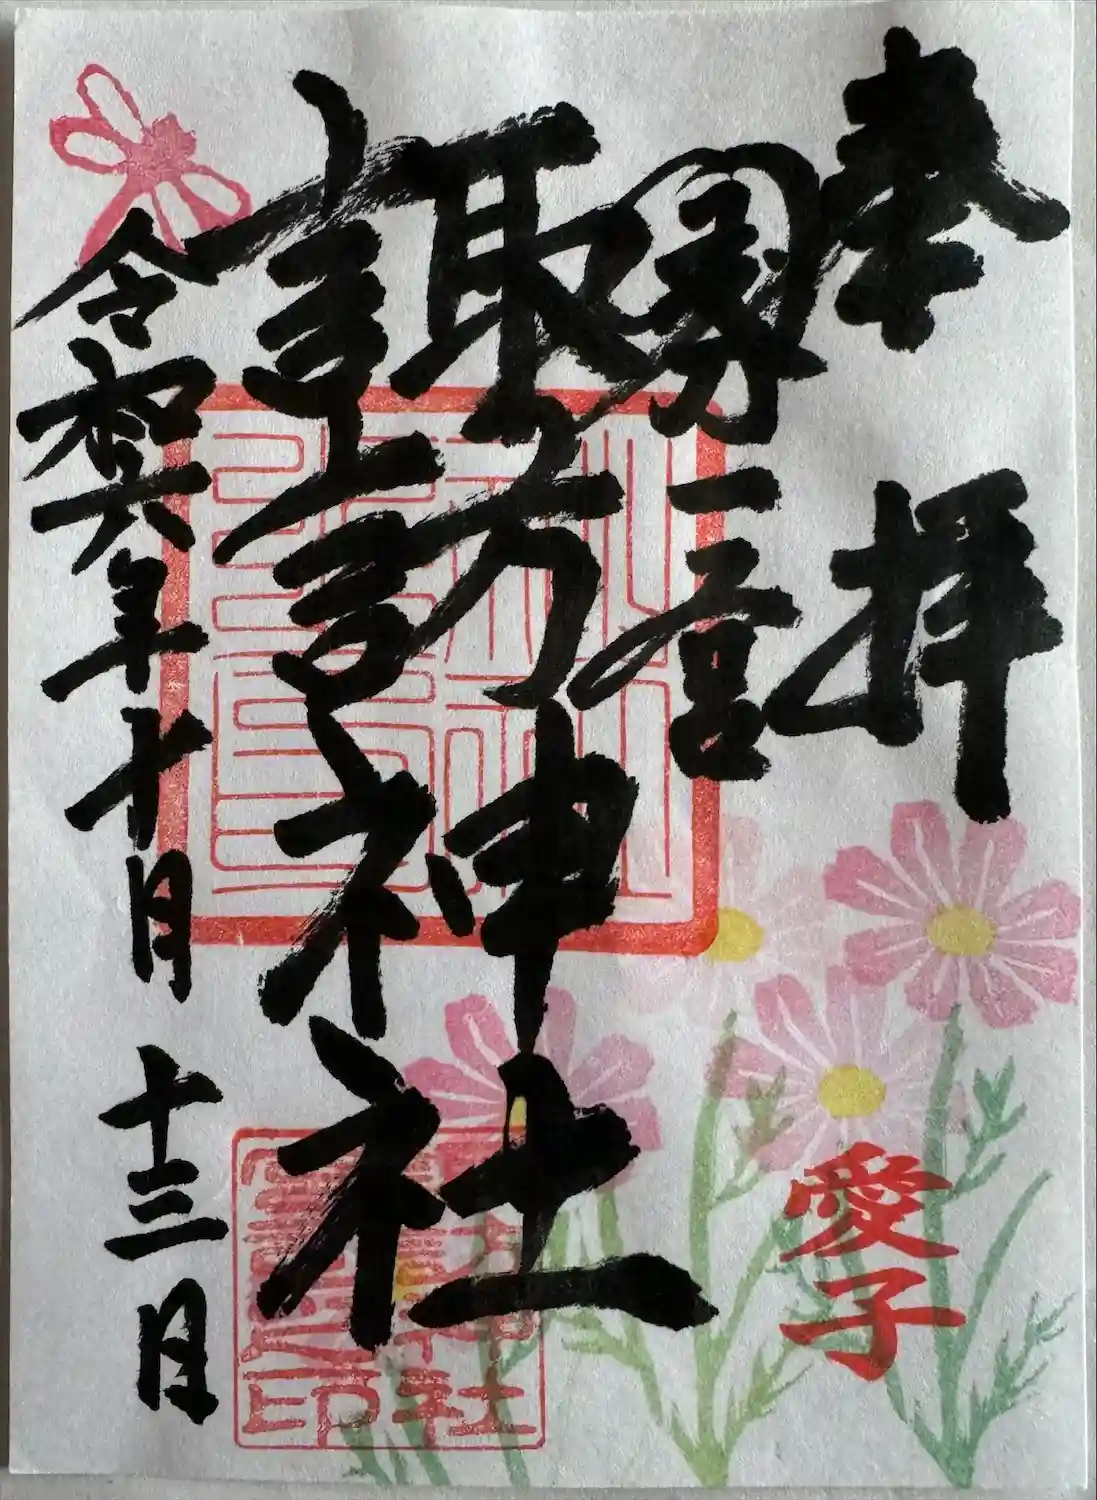 奉拝
國分一宮
諏訪神社
令和六年十月十三日
愛子